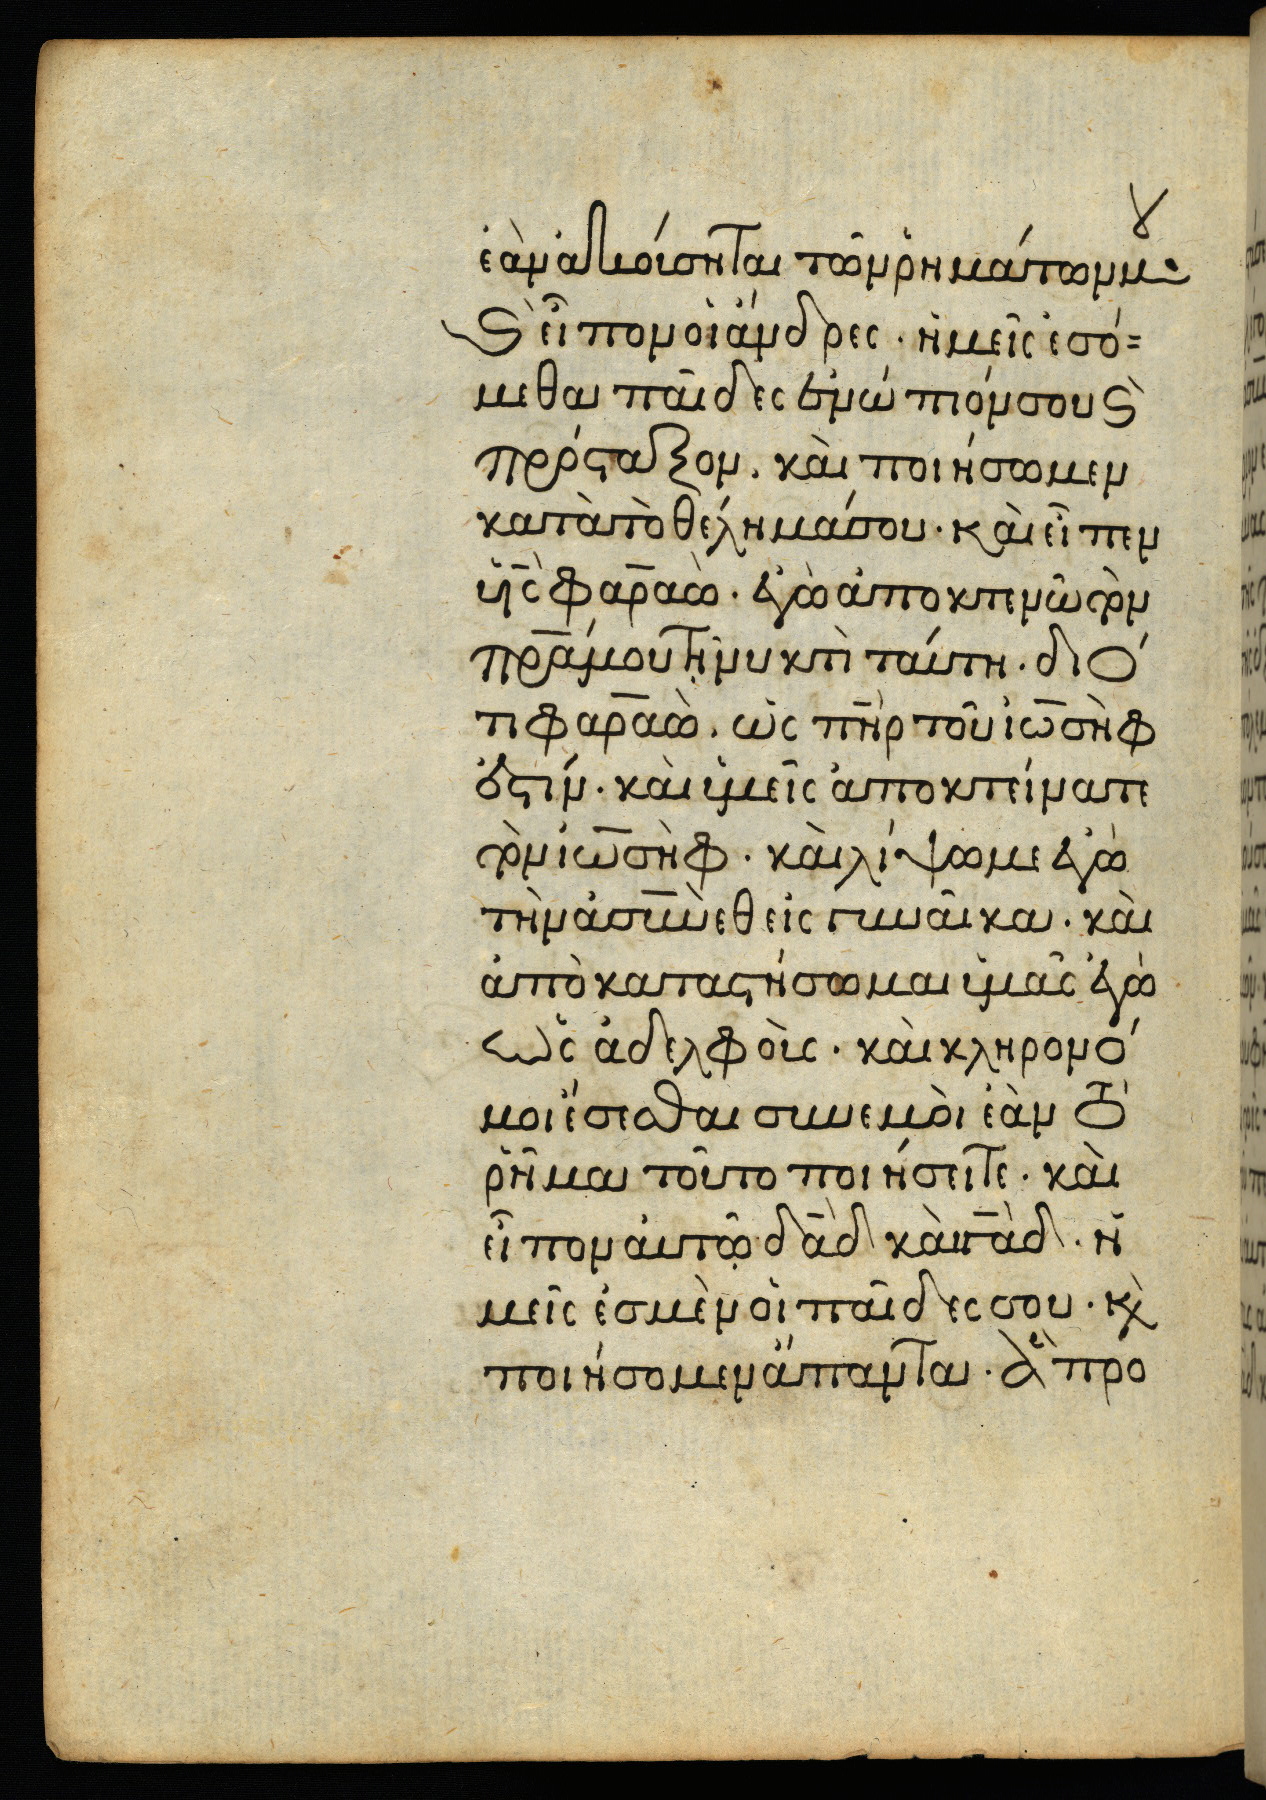 ἐὰν ἀκούσηται τῶν ῥημάτων μου·
Καὶ εἶπον οἱ ἄνδρες · ἡμεῖς ἐσό=
μεθα παῖδες ἐνώπιόν σου καὶ
πρόσταξον · καὶ ποιήσωμεν
κατὰ τὸ θέλημά σου · καὶ εἶπεν
ὑϊ̅ὸς φαρ̅αὼ · ἐγὼ ἀποκτενῶ τὸν
π̅ρ̅α μου τῇ νυκτὶ ταύτη · διό
τι φαρ̅αὼ · ὡς π̅η̅ρ τοῦ ἰω̅σὴφ
ἐστίν · καὶ ὑμεῖς ἀποκτείνατε
τὸν ἰω̅σὴφ · καὶ λίψωμε ἐγὼ
τὴν ἀσυ̅νὲθ εἰς γυναῖκα · καὶ
ἀπὸκαταστήσωμαι ὑμᾶς ἐγὼ
ὡς ἀδελφοὺς · καὶ κληρονό
μοι ἔσεσθαι συν εμοὶ ἐὰν τὸ
ῥῆμα τοῦτο ποιήσειτε · καὶ
εἶπον αὐτῷ δ̅ὰδ καὶ γ̅ὰδ · ἡ
μεῖς ἐσμὲν οἱ παῖδες σου · καὶ
ποιήσομεν ἅπαντα · ἃ προ